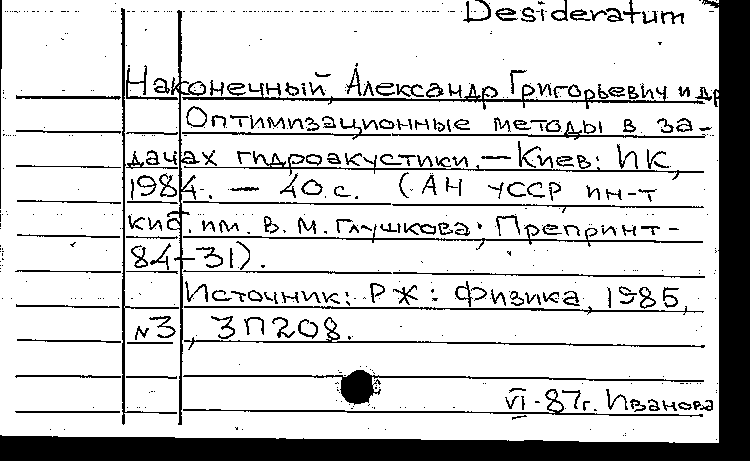 Desideratum
Наконечный, Александр Григорьевич и др
Оптимизационные методы в за-
дачах гидроакустики. — Киев: ИК,
1984. — 40 с. (АН УССР, ин-т
киб. им. В. М. Глушкова; Препринт-
84-31).
Источник: РЖ: Физика, 1985,
№3, 3П208.
VI-87г. Иванова